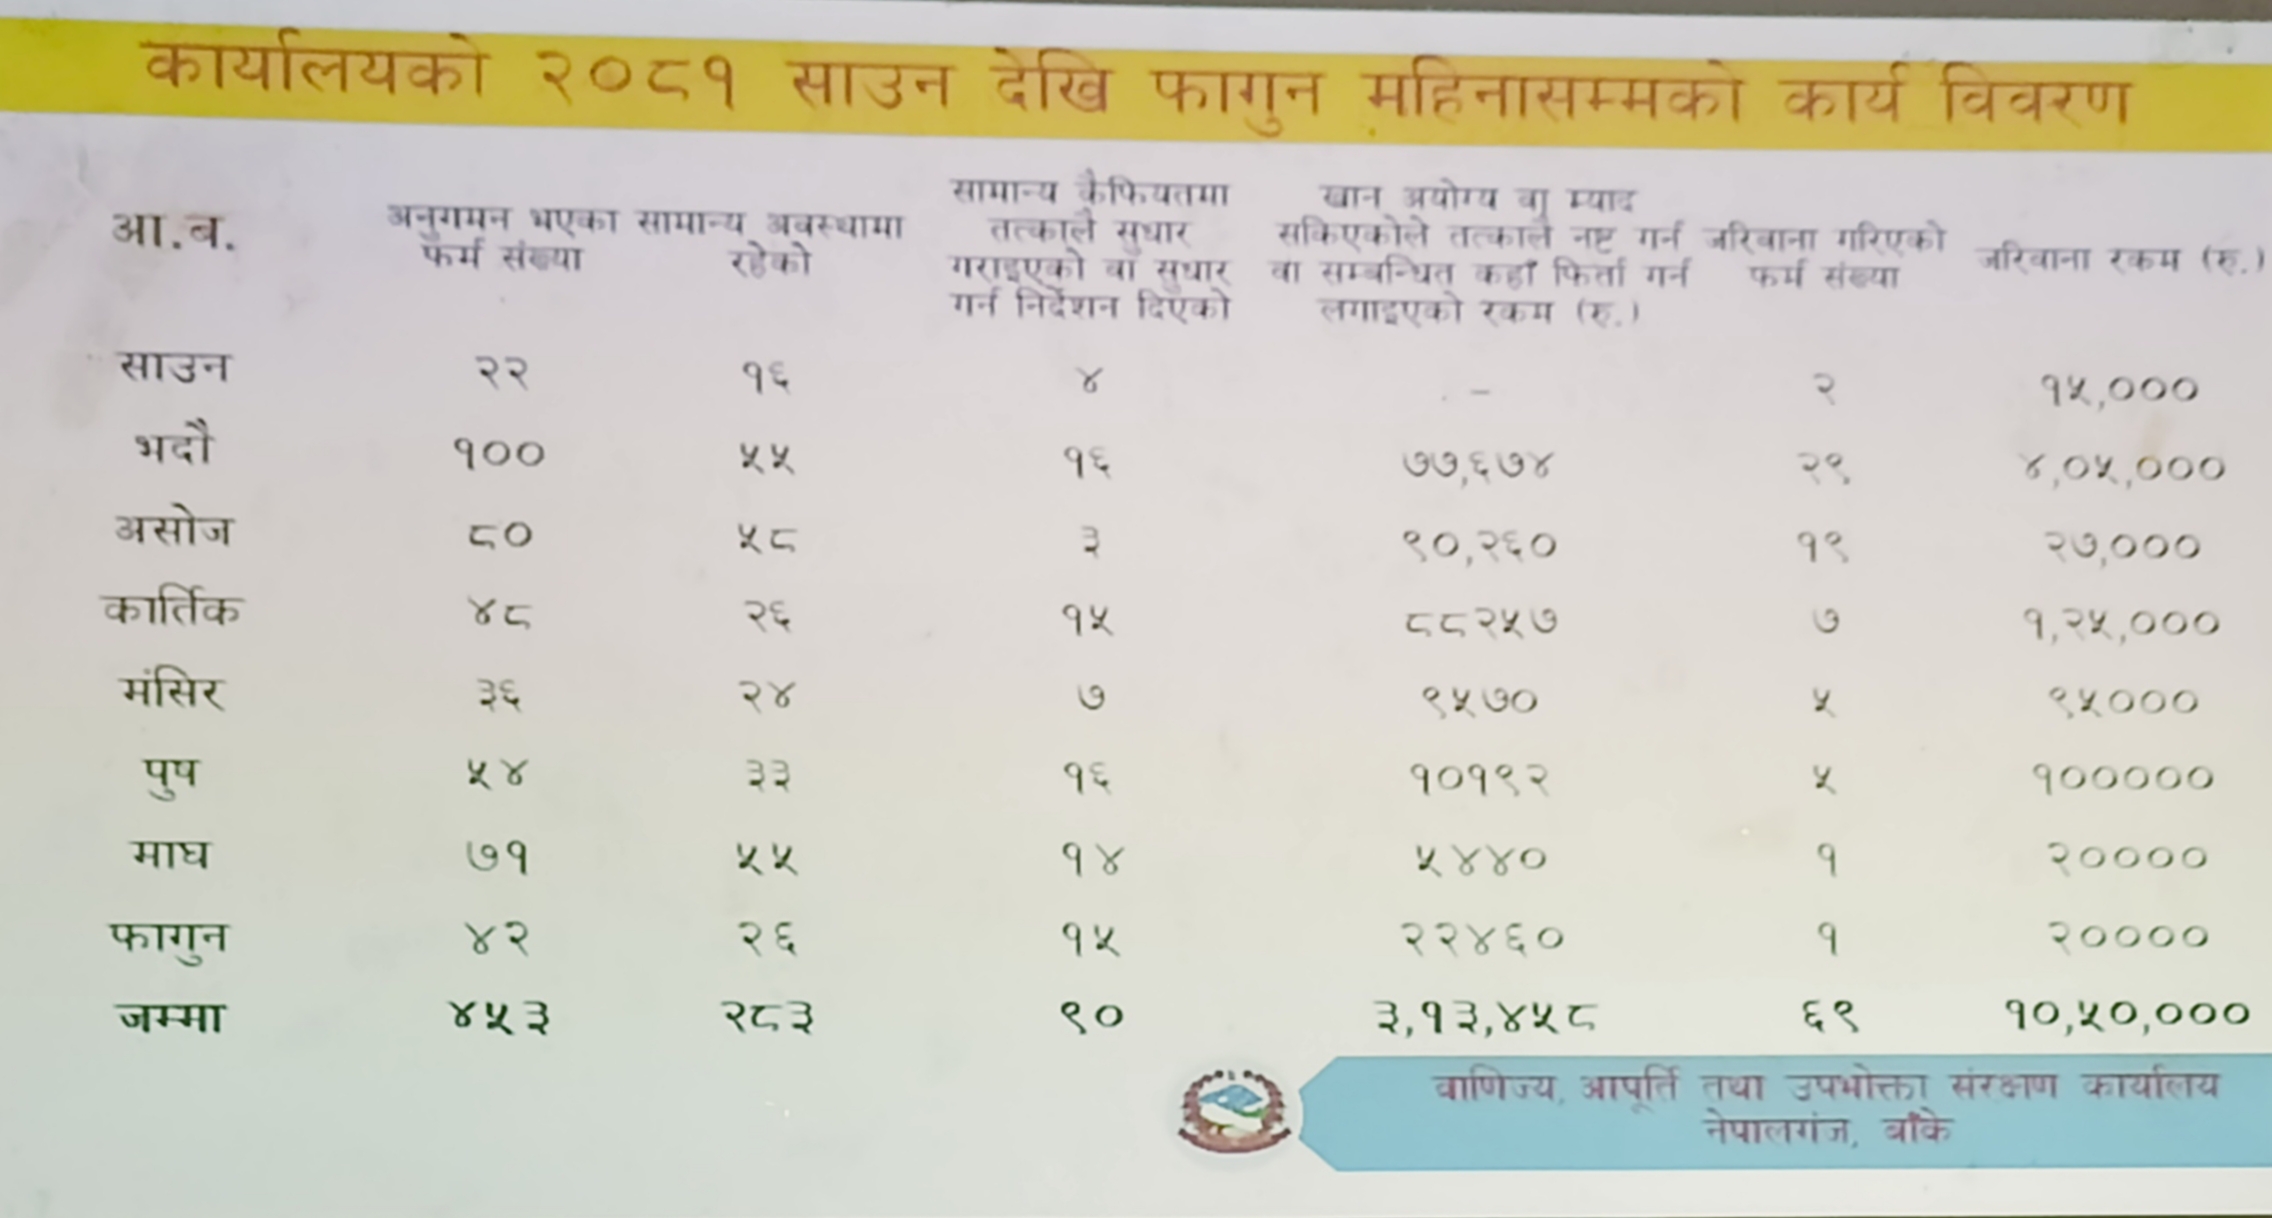 कार्यालयको २०८१ साउन देखि फागुन महिनासम्मको कार्य विवरण
आ.ब. अनुगमन भएका फर्म संख्या सामान्य अवस्थामा रहेको सामान्य कैफियतमा तत्कालै सुधार गराइएको वा सुधार गर्न निर्देशन दिएको खान अयोग्य वा म्याद सकिएकोले तत्कालै नष्ट गर्न वा सम्बन्धित कहाँ फिर्ता गर्न लगाइएको रकम (रु.) जरिवाना गरिएको फर्म संख्या जरिवाना रकम (रु.)
साउन २२ १६ ४ - २ १५,०००
भदौ १०० ५५ १६ ७७,६७४ २९ ४,०५,०००
असोज ८० ५८ ३ ९०,२६० १९ २७,०००
कार्तिक ४८ २६ १५ ८८२५७ ७ १,२५,०००
मंसिर ३६ २४ ७ ९५७० ५ ९५०००
पुष ५४ ३३ १६ १०१९२ ५ १०००००
माघ ७१ ५५ १४ ५४४० १ २००००
फागुन ४२ २६ १५ २२४६० १ २००००
जम्मा ४५३ २८३ ९० ३,१३,४५८ ६९ १०,५०,०००
वाणिज्य, आपूर्ति तथा उपभोक्ता संरक्षण कार्यालय
नेपालगंज, बाँके